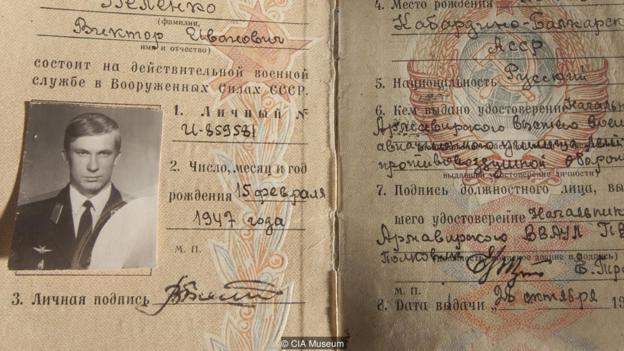 Беленко
(фамилия,
Виктор Иванович
имя и отчество)
состоит на действительной военной
службе в Вооруженных Силах СССР.
1. Личный №
И-859581
2. Число, месяц и год
рождения 15 февраля
1947 года
М. П.
3. Личная подпись
4. Место рождения
Кабардино-Балкарск
АССР
5. Национальность Русский
6. Кем выдано удостоверение Начальни
Армавирского высшего воен
авиационного училища
противовоздушной оборон
выдавшего удостоверение личности)
7. Подпись должностного лица, вы
шего удостоверение Начальник
Армавирского ВВАУЛ ПВ
Полковник
М. П.
8. Дата выдачи „26 октября 19
© CIA Museum